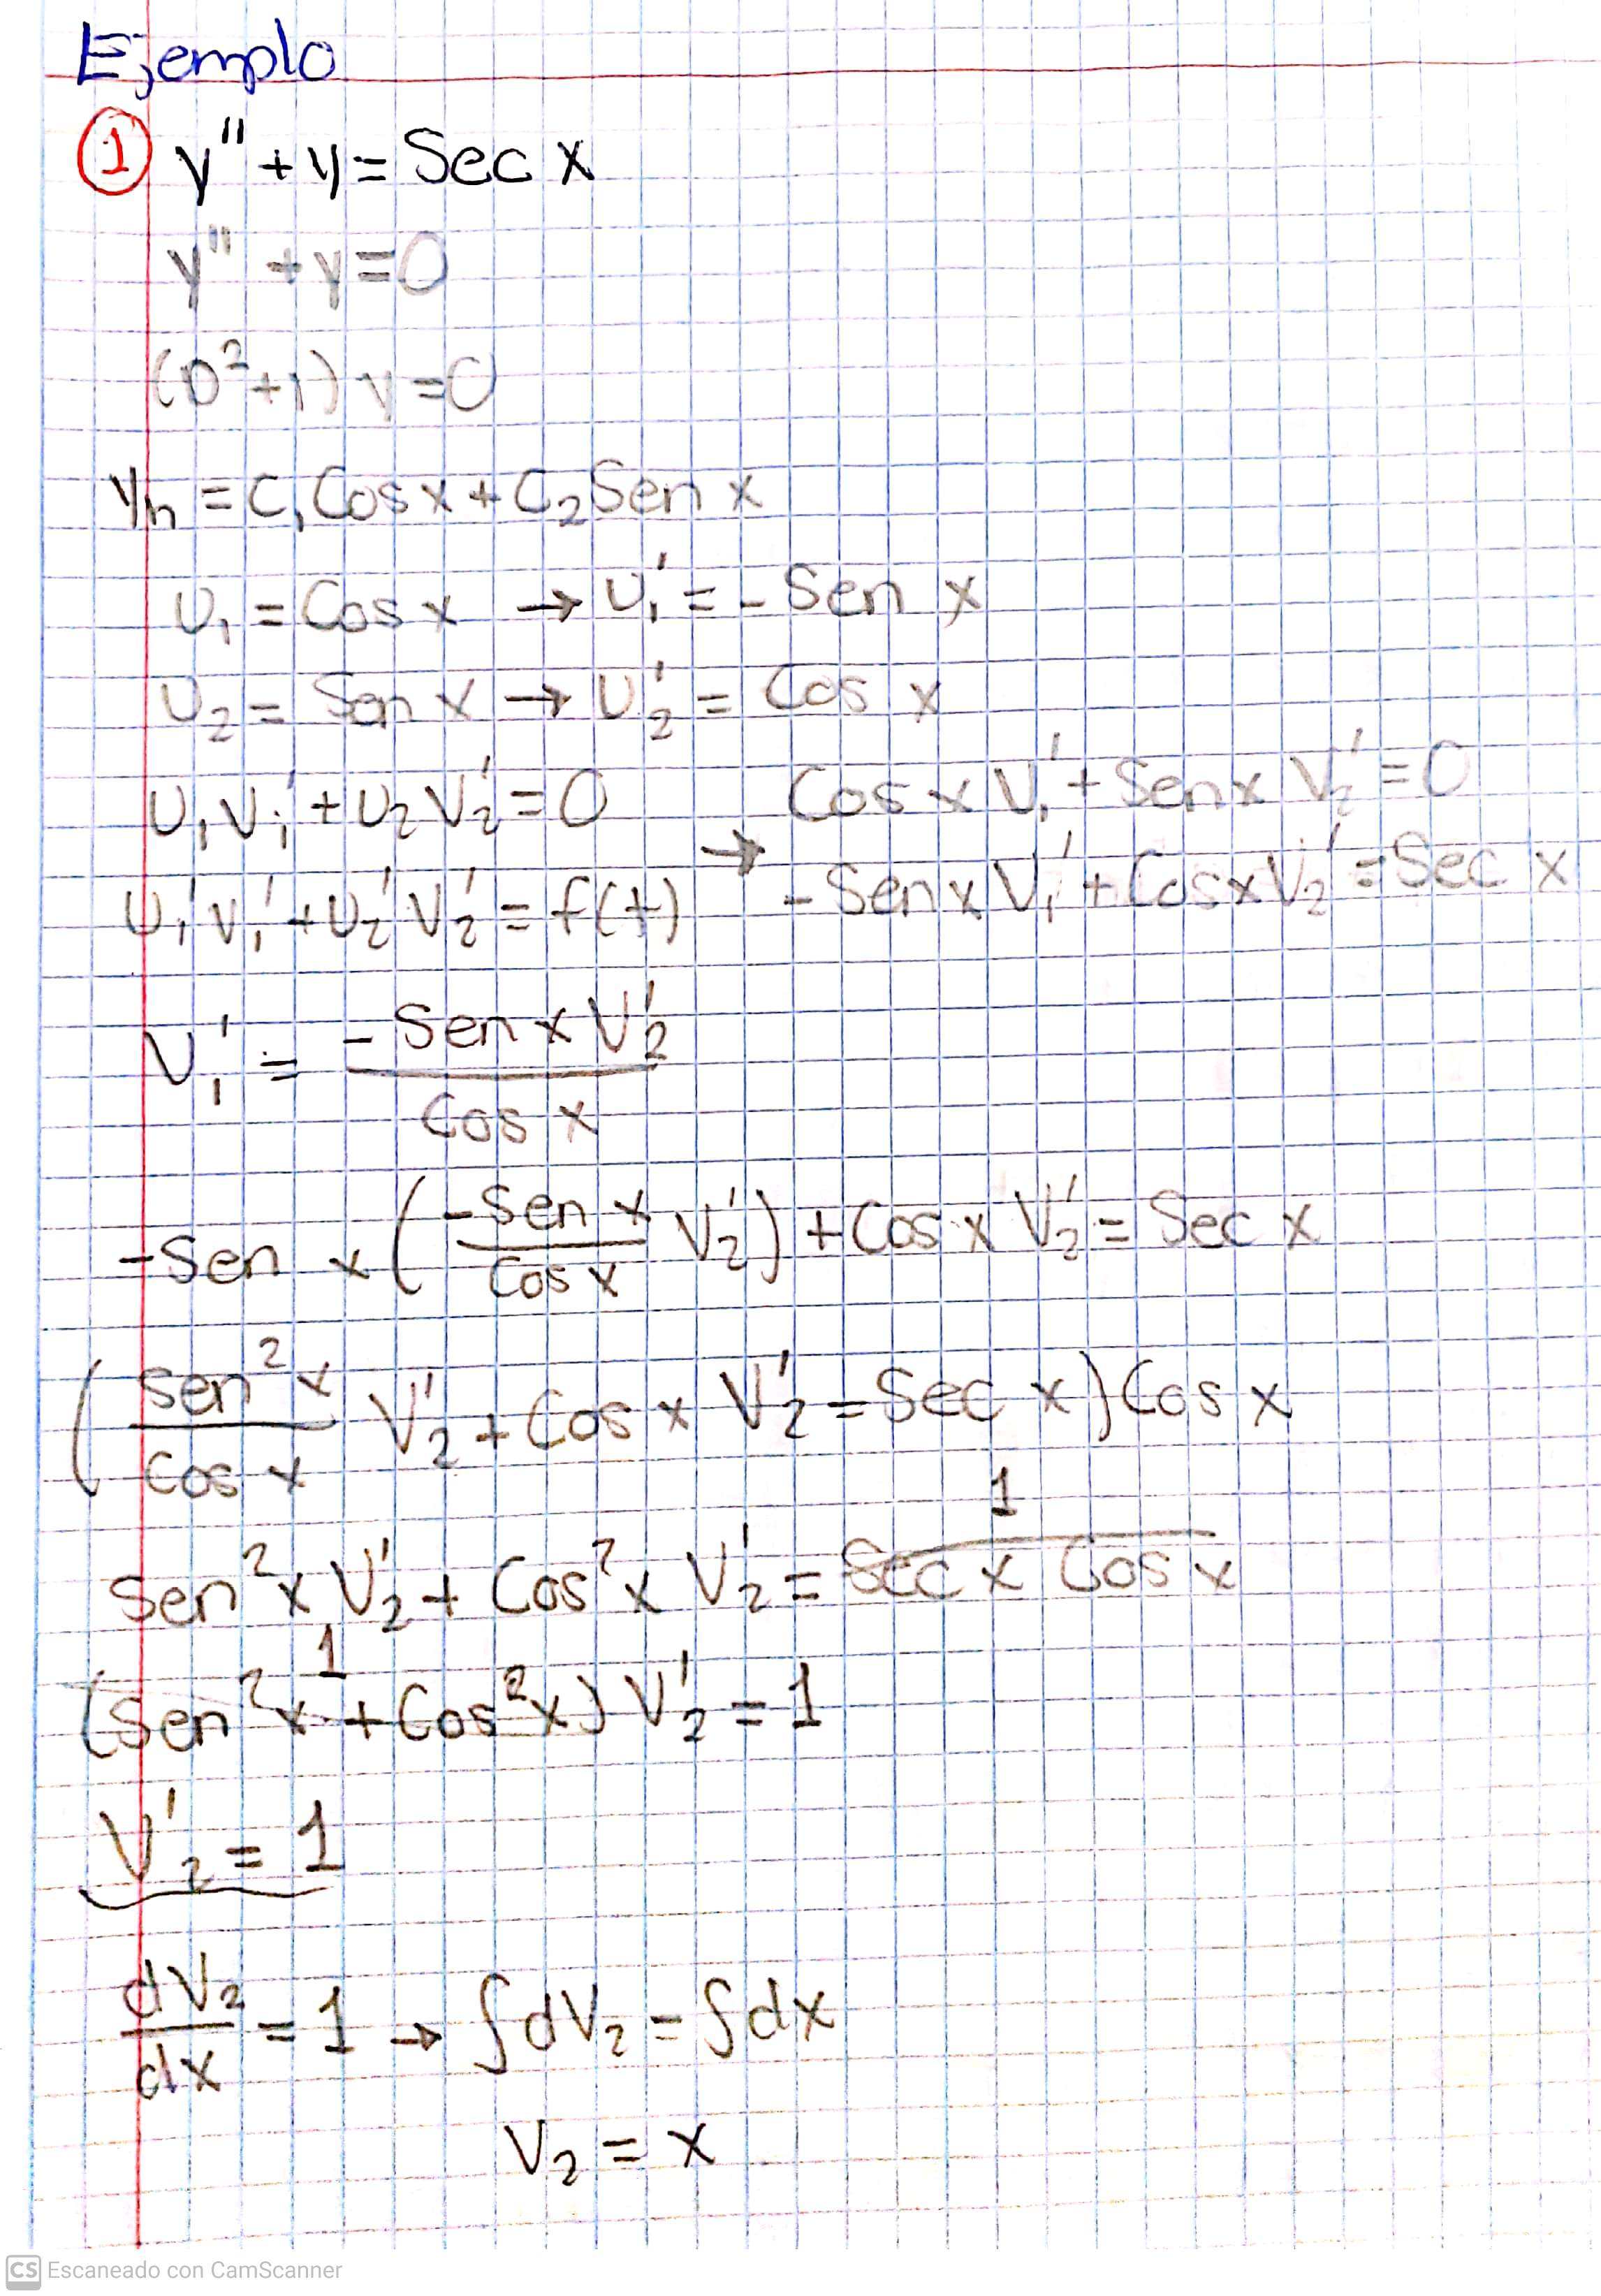 Ejemplo
① y'' + y = Sec x
y'' + y = 0
(D²+1) y = 0
yh = C₁ Cos x + C₂ Sen x
U₁ = Cos x → U₁' = - Sen x
U₂ = Sen x → U₂' = Cos x
U₁V₁' + U₂V₂' = 0 → Cos x V₁' + Sen x V₂' = 0
U₁'V₁' + U₂'V₂' = f(t) - Sen x V₁' + Cos x V₂' = Sec x
V₁' = - Sen x V₂' / Cos x
-Sen x (-Sen x / Cos x V₂') + Cos x V₂' = Sec x
(Sen² x / Cos x V₂' + Cos x V₂' = Sec x) Cos x
1
Sen² x V₂' + Cos² x V₂' = Sec x Cos x
1
(Sen² x + Cos² x) V₂' = 1
V₂' = 1
dV₂/dx = 1 → ∫dV₂ = ∫dx
V₂ = x
CS Escaneado con CamScanner